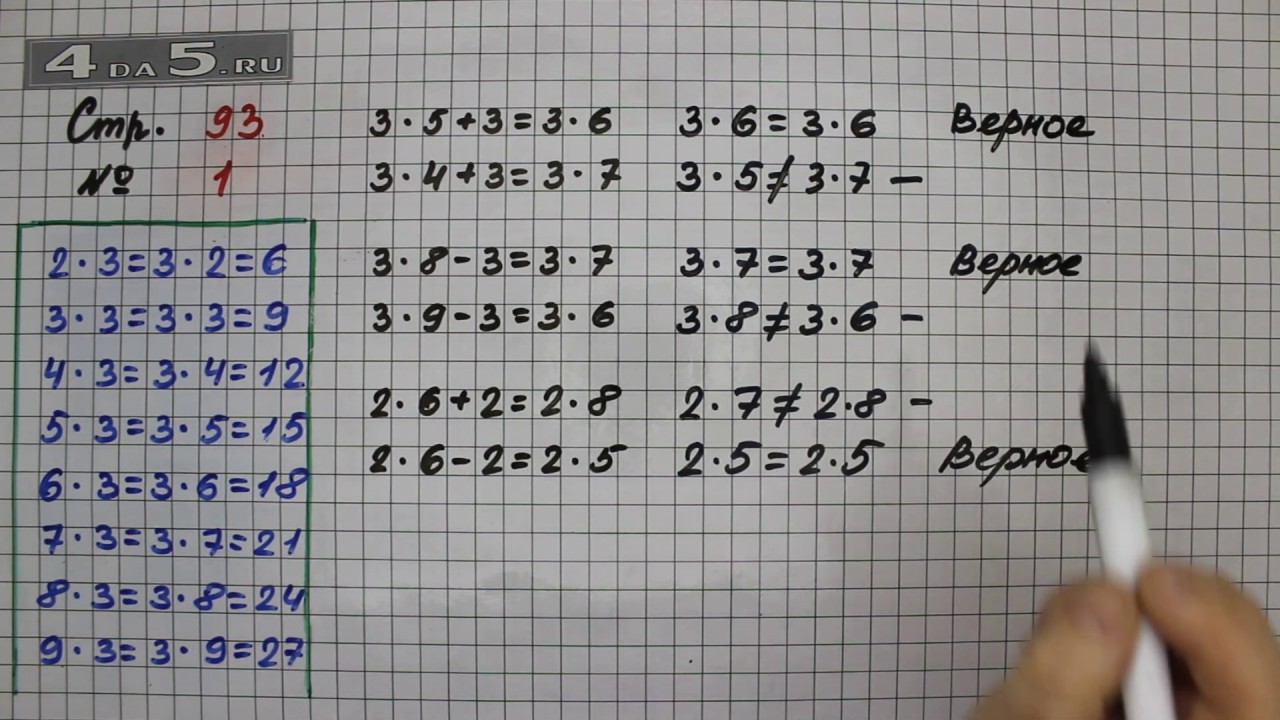 4 DA 5.RU
Стр. 93
№ 1
2·3=3·2=6
3·3=3·3=9
4·3=3·4=12
5·3=3·5=15
6·3=3·6=18
7·3=3·7=21
8·3=3·8=24
9·3=3·9=27
3·5+3=3·6 3·6=3·6 Верное
3·4+3=3·7 3·5≠3·7 –
3·8-3=3·7 3·7=3·7 Верное
3·9-3=3·6 3·8≠3·6 –
2·6+2=2·8 2·7≠2·8 –
2·6-2=2·5 2·5=2·5 Верное